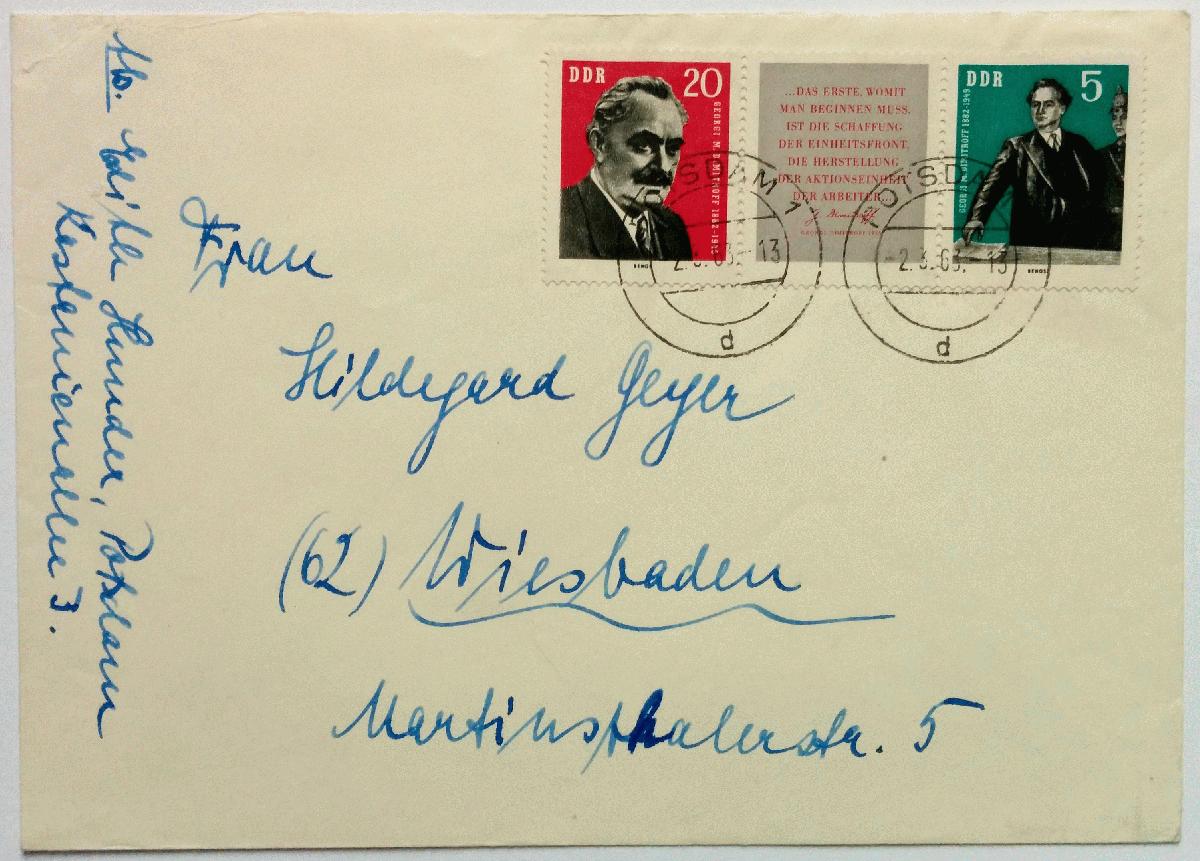 DDR 20
GEORGI M. DIMITROFF 1882-1949
...DAS ERSTE, WOMIT
MAN BEGINNEN MUSS,
IST DIE SCHAFFUNG
DER EINHEITSFRONT,
DIE HERSTELLUNG
DER AKTIONSEINHEIT
DER ARBEITER...
G. Dimitroff
GEORGI DIMITROFF
DDR 5
GEORGI M. DIMITROFF 1882-1949
POTSDAM 1
2.3.63.-13
d
POTSDAM
2.3.63.-13
d
Frau
Hildegard Geyer
(62) Wiesbaden
Martinsthalerstr. 5
Ab. Edith Potsdam
Kastanienallee 3.